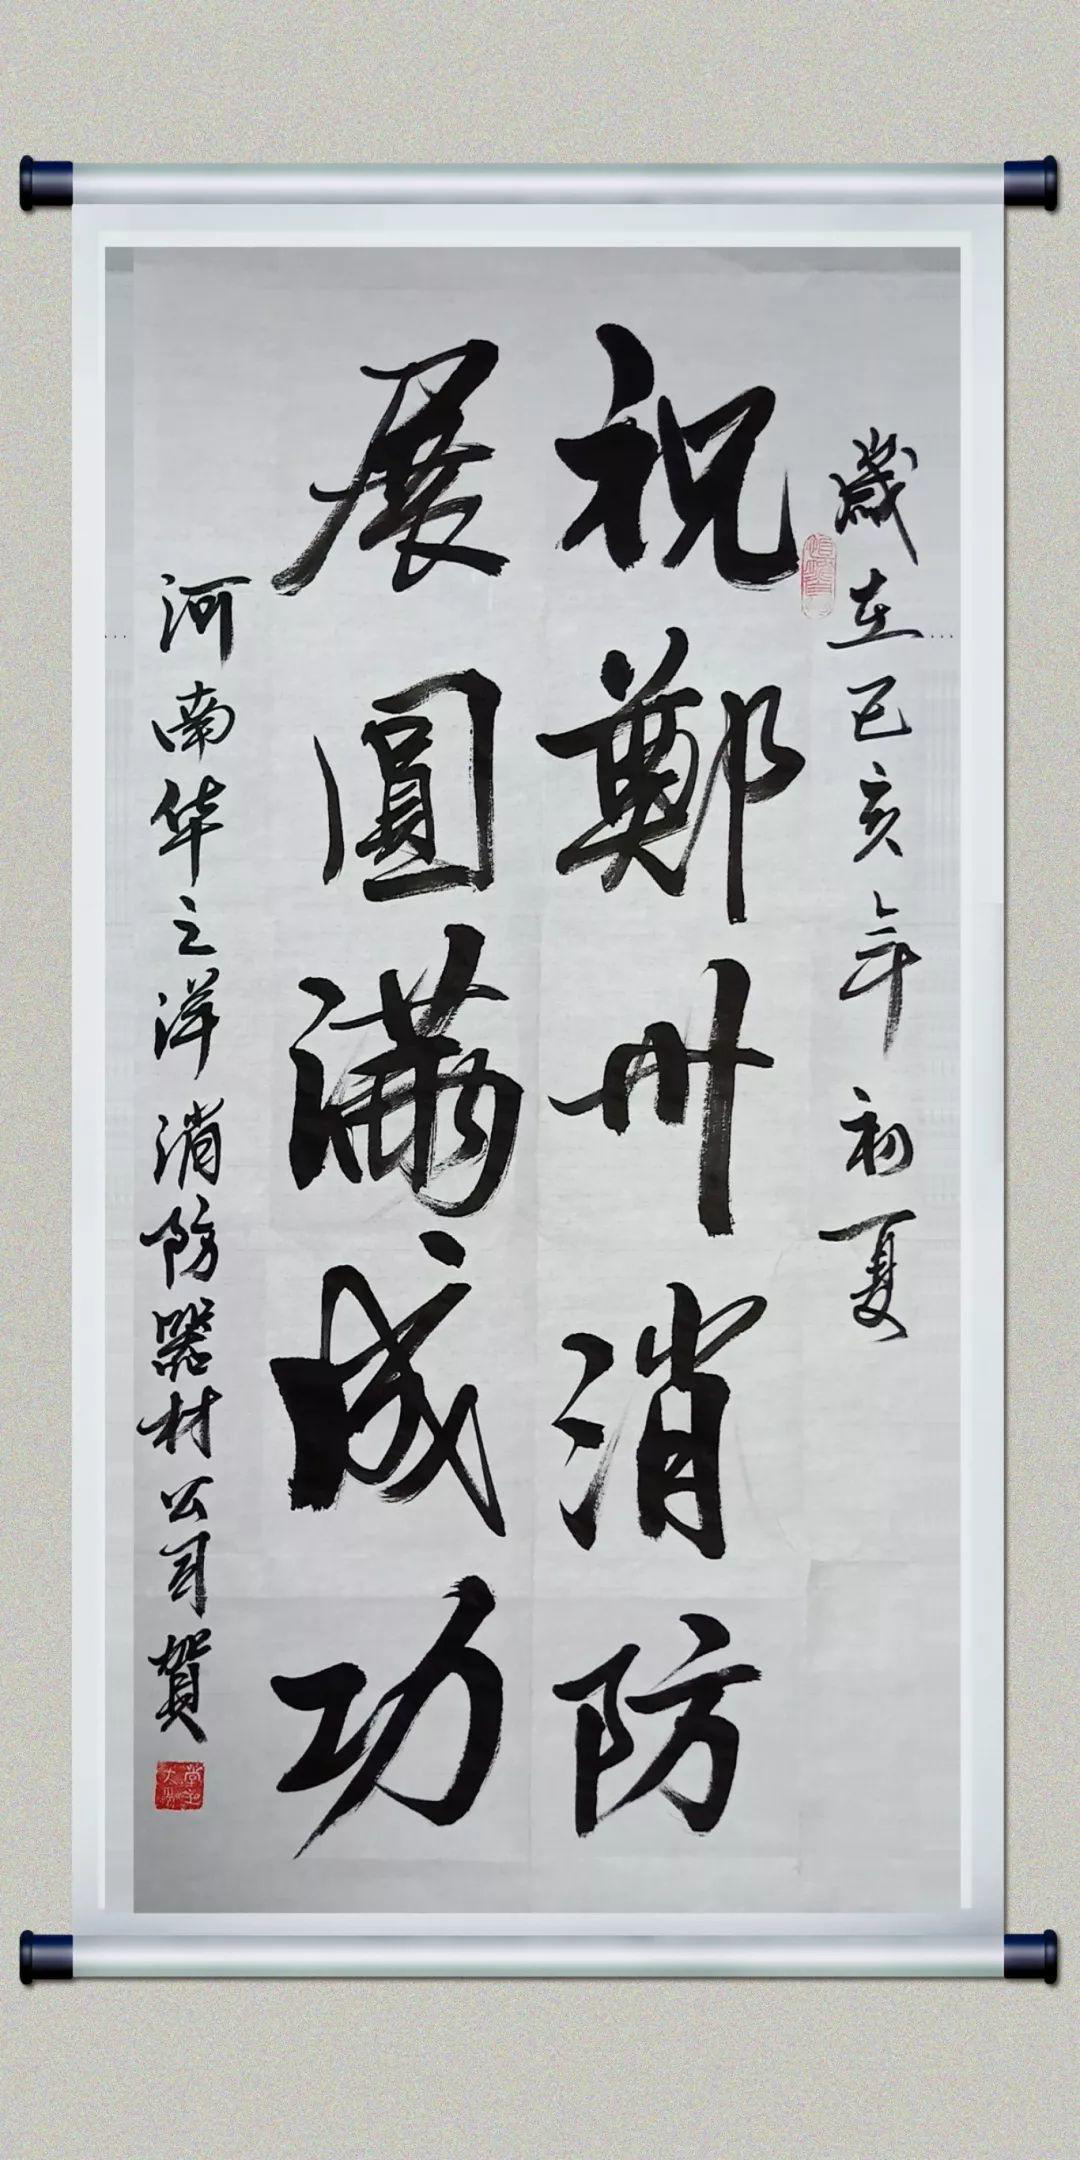 歲在己亥年初夏
祝鄭州消防
展圓滿成功
河南华之洋消防器材公司賀